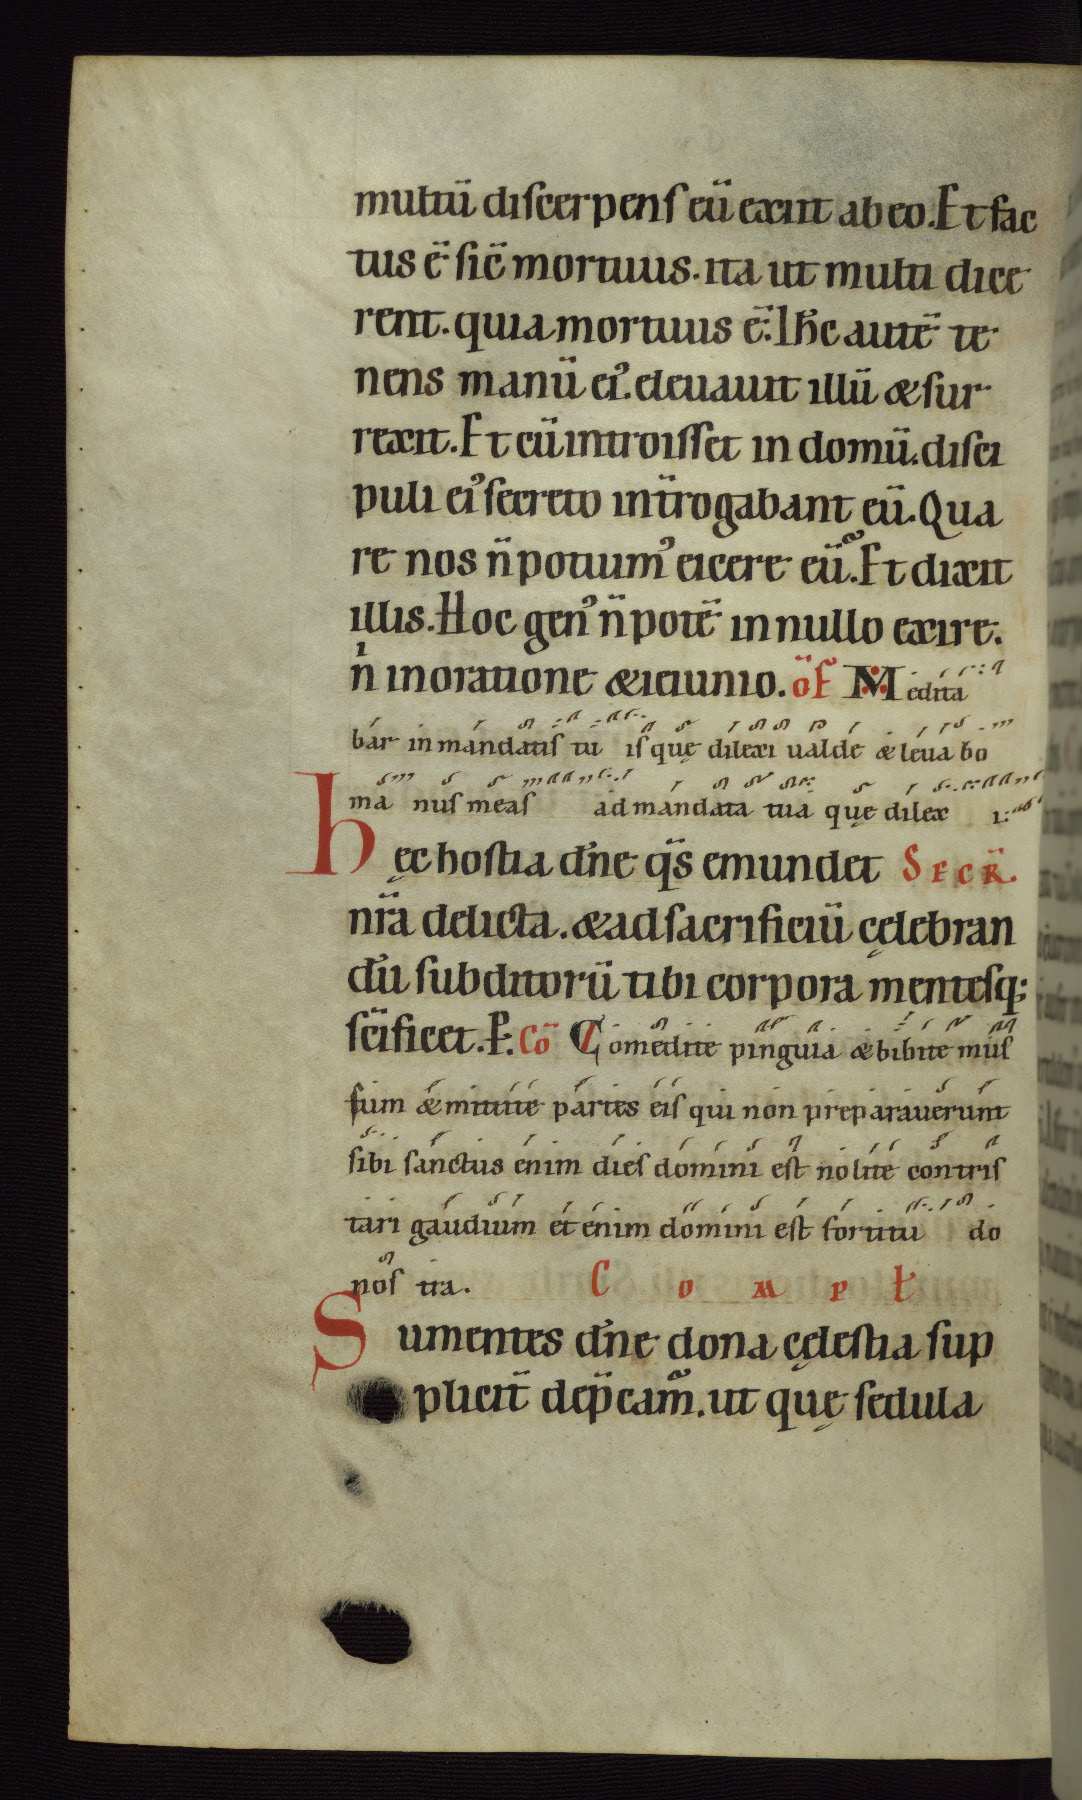 multū diſcerpenſ eū exiit ab eo. Et fac
tus ē ſic̄ mortuus. ita ut multi dice
rent. quia mortuus ē. Ih̄c autē te
nens manū ei᾿. eleuauit illū & ſur
rexit. Et cū introiſſet in domū. diſci
puli ei᾿ ſecreto int̄rogabant eū. Qua
re nos n̄ potuim᾿ eicere eū. Et dixit
illis. Hoc gen᾿ n̄ poteſ̄ in nullo exire.
n̍ in oratione & ieiunio. of̄ Medita
bar in mandatiſ tu iſ quę dilexi ualde & leuabo
ma nuſ meaſ ad mandata tua quę dilex i.
hęc hoſtia dn̄e qs̄ emundet Secr̄.
nr̄a delicta. & ad ſacrificiū cęlebran
dū ſubditorū tibi corpora mentesq;
ſcīficet. P. Cō Comedite pinguia & bibite muſ
ſum & mittite partes eiſ qui non preparauerunt
ſibi ſanctus enim dieſ domini eſt nolite contriſ
tari gaudium etenim domini eſt fortitu do
noſ tra. C o m p ł
Sumentes dn̄e dona cęleſtia ſup
plicit̄ dep̄cam̄. ut quę ſedula